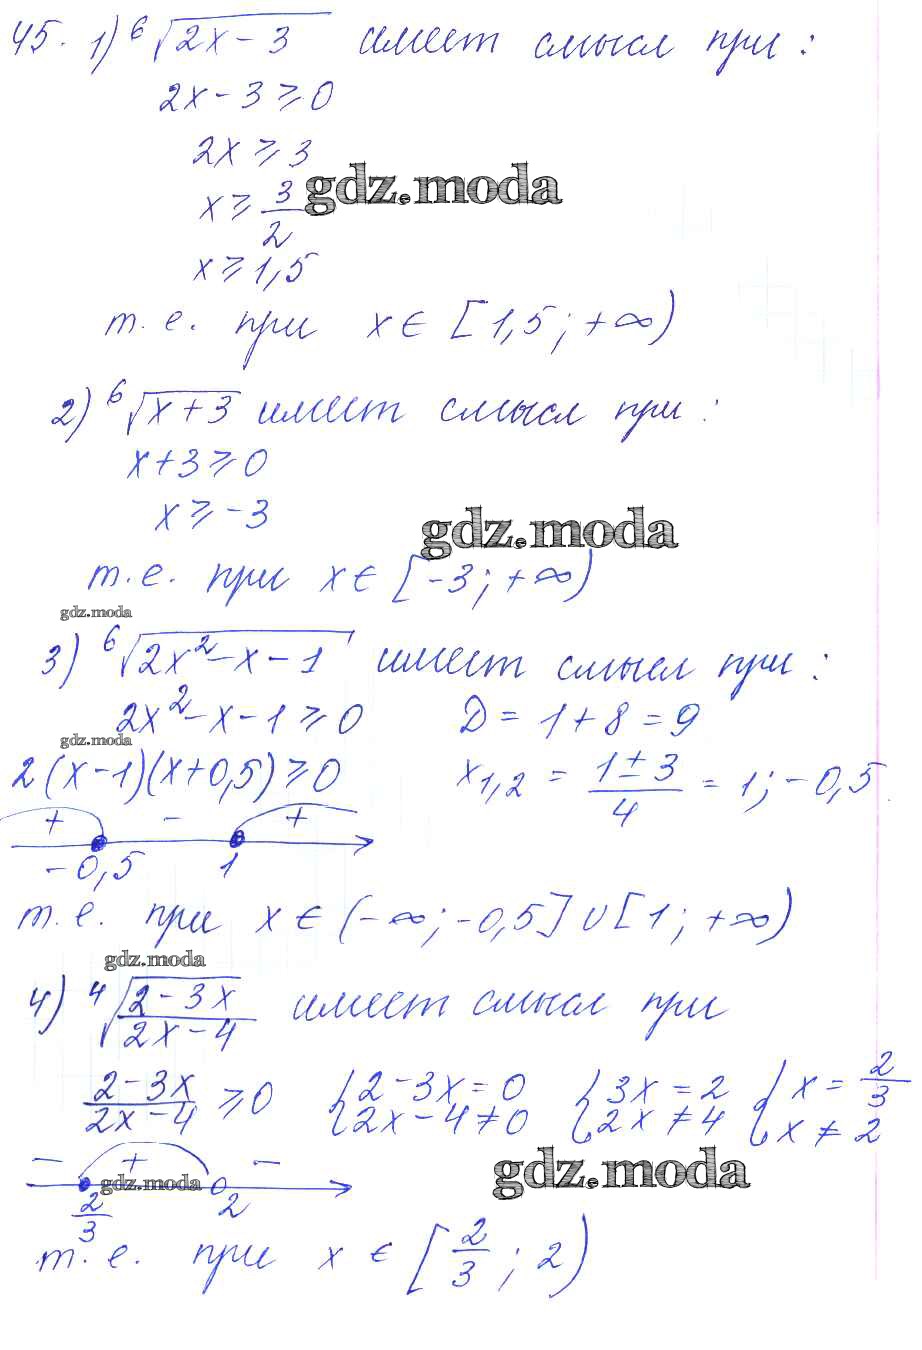 45. 1) ⁶√2x-3 имеет смысл при:
2x-3⩾0
2x⩾3
gdz.moda
x⩾3/2
x⩾1,5
т.е. при x∈[1,5;+∞)
2) ⁶√x+3 имеет смысл при:
x+3⩾0
x⩾-3
gdz.moda
т.е. при x∈[-3;+∞)
gdz.moda
3) ⁶√2x²-x-1 имеет смысл при:
2x²-x-1⩾0 D=1+8=9
gdz.moda
2(x-1)(x+0,5)⩾0 x1,2 = 1±3/4 = 1;-0,5
+ - +
-0,5 1
т.е. при x∈(-∞;-0,5]∪[1;+∞)
gdz.moda
4) ⁴√2-3x/2x-4 имеет смысл при
2-3x/2x-4 ⩾0 {2-3x=0 2x-4≠0 {3x=2 2x≠4 {x=2/3 x≠2
- + -
gdz.moda
gdz.moda
2/3 2
т.е. при x∈[2/3;2)